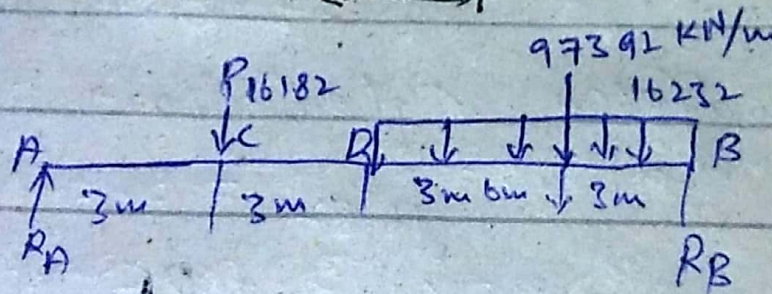 97392 KN/m
P16182 16232
A C D B
3m 3m 3m 6m 3m
RA RB